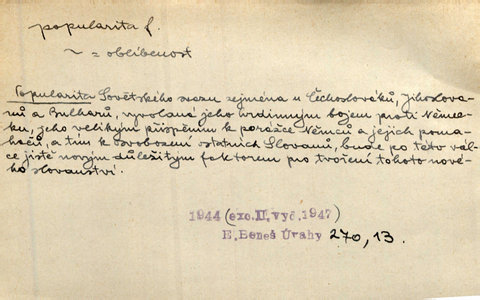 popularita f.
~ = oblíbenost
Popularita Sovětského svazu zejména u Čechoslováků, Jihoslova-
nů a Bulharů, vyvolaná jeho hrdinným bojem proti Němec-
ku, jeho velikým přispěním k porážce Němců a jejich poma-
hačů, a tím k osvobození ostatních Slovanů, bude po této vál-
ce jistě novým důležitým faktorem pro tvoření tohoto nové-
ho slovanství.
1944 (exc. II. vyč. 1947)
E. Beneš Úvahy 270, 13.